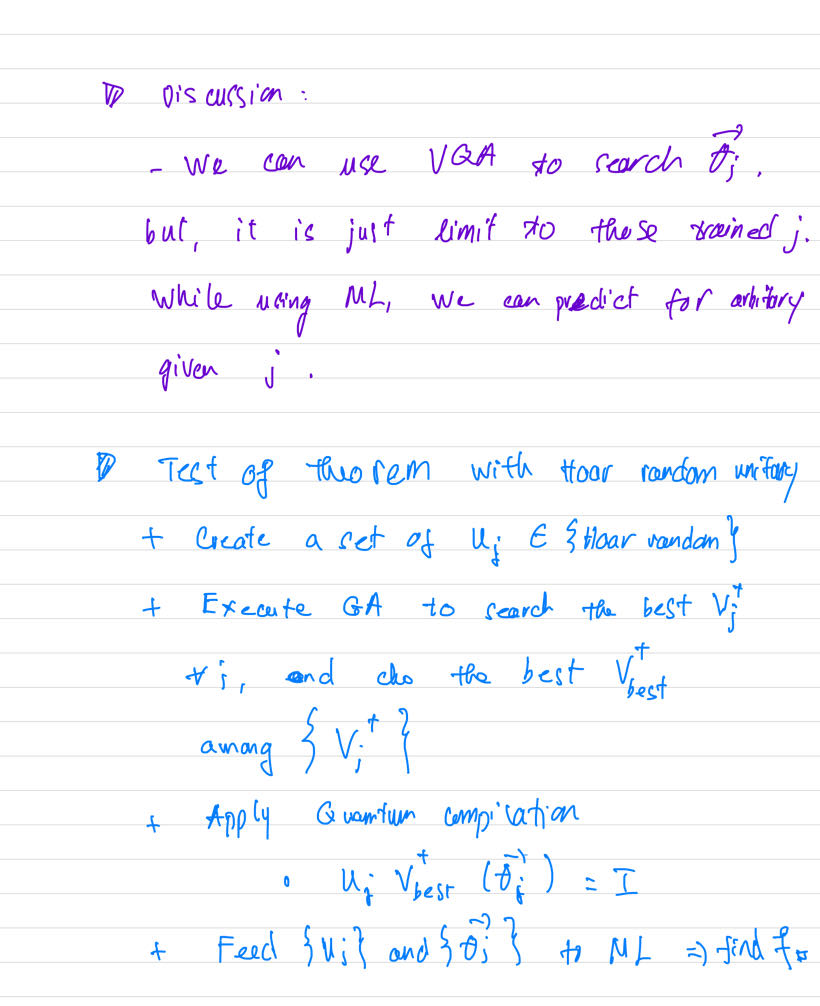 ▽ Discussion :
- We can use VQA to search $\vec{\theta}_j$.
but, it is just limit to these trained j.
While using ML, we can predict for arbitary
given j.
▽ Test of theorem with Haar random unitary
+ Create a set of $U_j \in \{$Haar random$\}$
+ Execute GA to search the best $V_j^\dagger$
∀ j, and cho the best $V_{best}^\dagger$
among $\{ V_j^\dagger \}$
+ Apply Quantum compilation
• $U_j V_{best}^\dagger (\vec{\theta}_j) = I$
+ Feed $\{U_j\}$ and $\{\vec{\theta}_j\}$ to ML ⇒ find